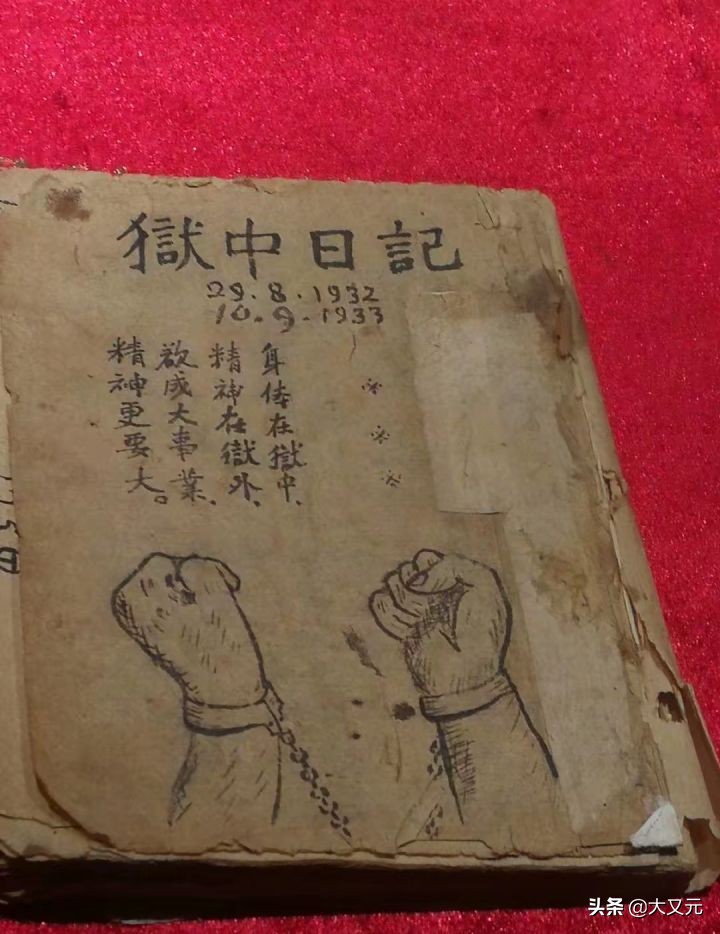 獄中日記
29.8.1932
10.9.1933
身体在獄中、
精神在獄外、
欲成大事業、
精神更要大。
头条 @大又元